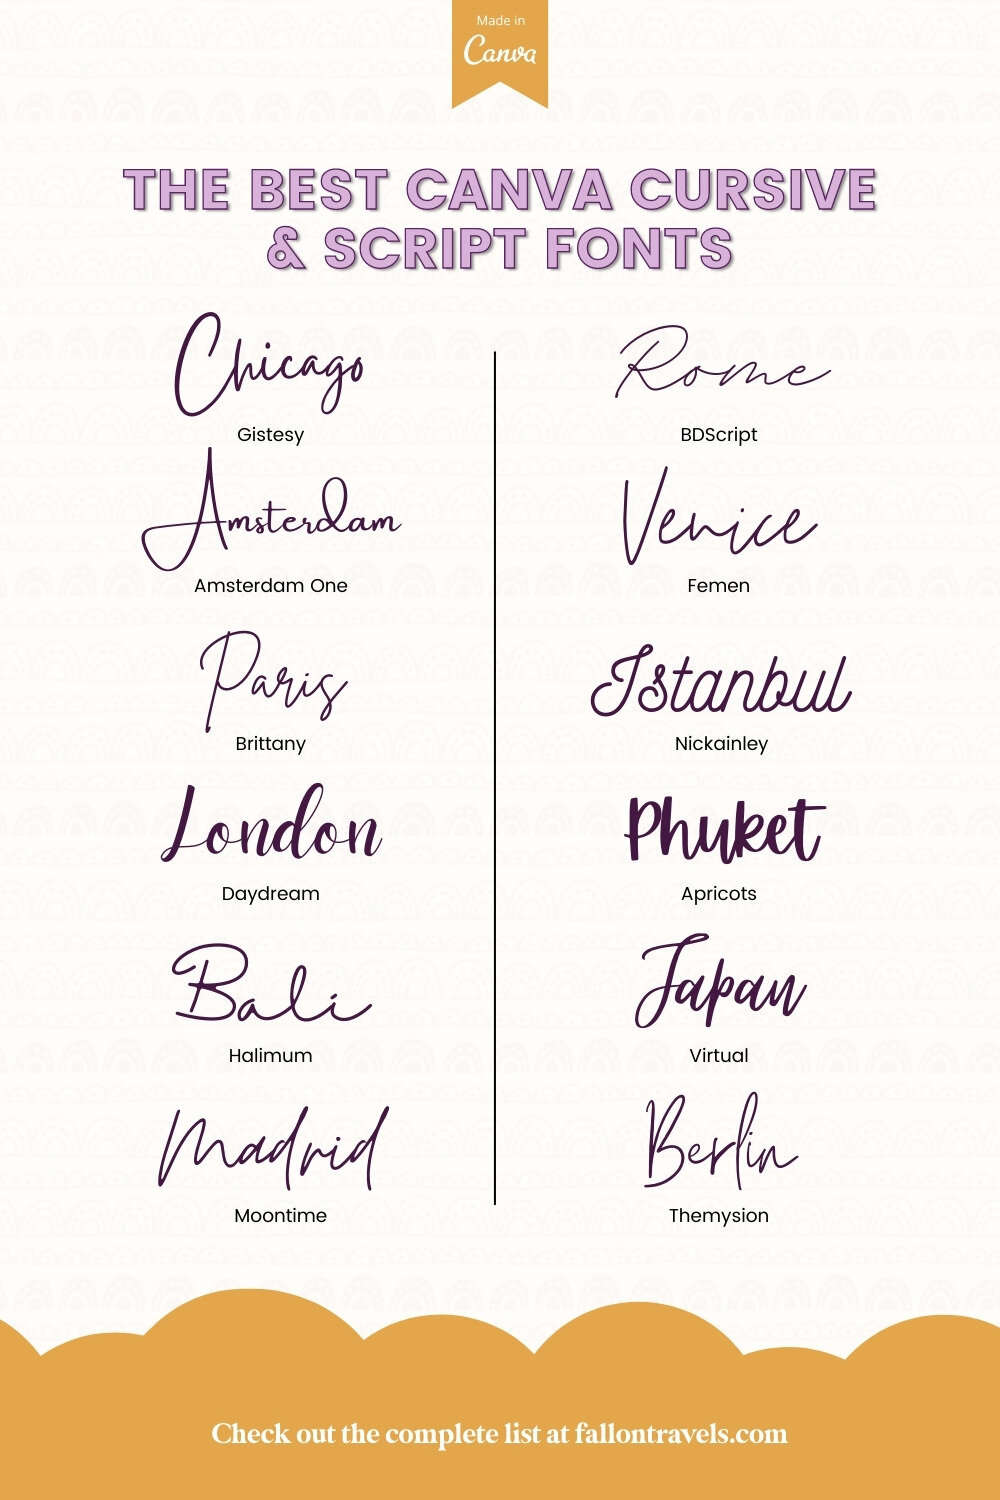 Made in
Canva
THE BEST CANVA CURSIVE
& SCRIPT FONTS
Chicago
Gistesy
Amsterdam
Amsterdam One
Paris
Brittany
London
Daydream
Bali
Halimum
Madrid
Moontime
Rome
BDScript
Venice
Femen
Istanbul
Nickainley
Phuket
Apricots
Japan
Virtual
Berlin
Themysion
Check out the complete list at fallontravels.com